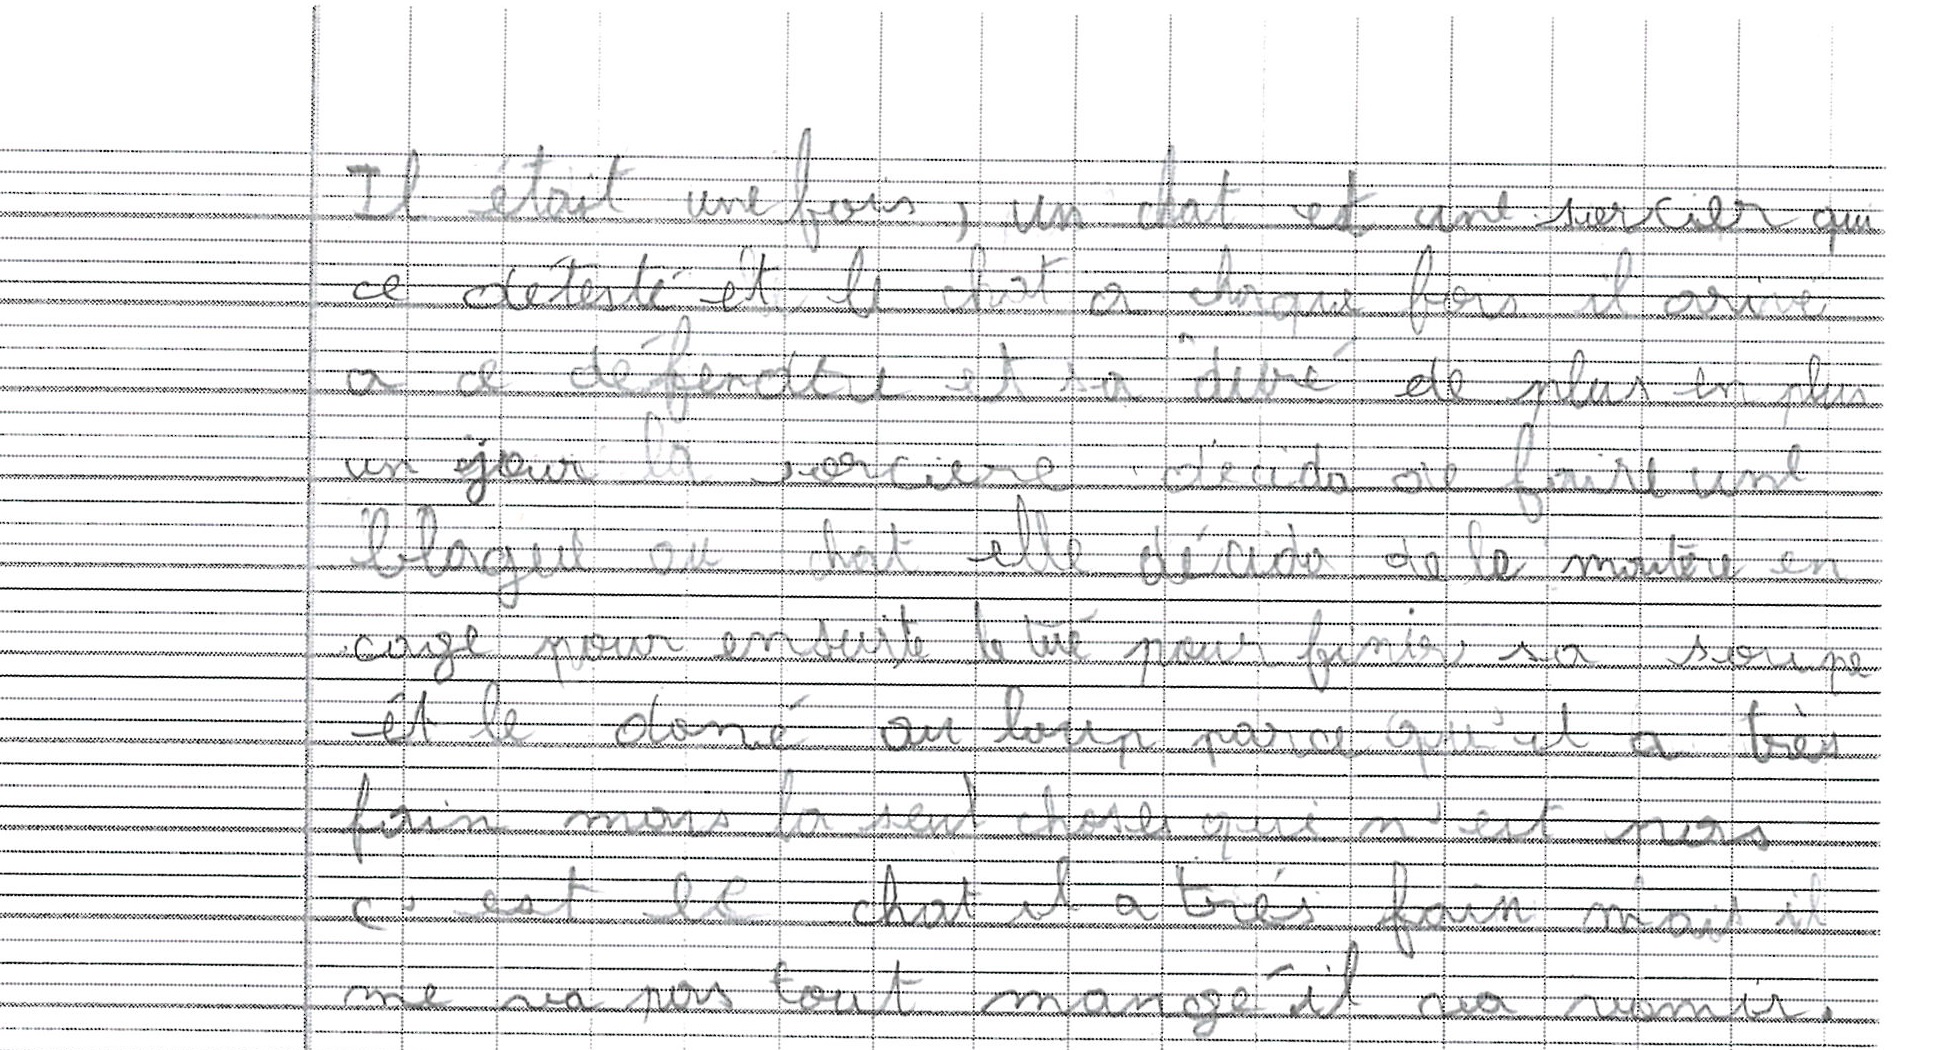 Il était une fois, un chat et une sorcier qui
ce détesté et le chat a chaque fois il arive
a ce défendre et sa duré de plus en plus
un jour la sorciere décida de faire une
blague au chat elle décida de le montère en
cage pour ensuite le tué pour finir sa soupe
êt le doné au loup parce qu'il a très
fain mais la seul choses qui n'est pas
c'est le chat il a trés fain mais il
me va pas tout mangé il va vomir.